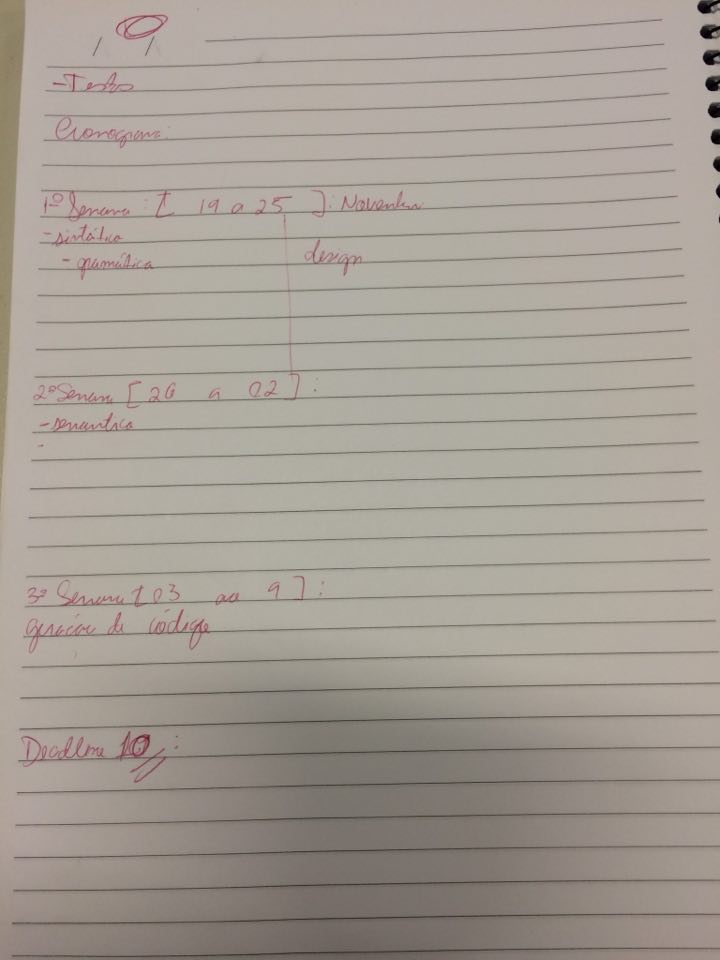 / /
Cronograma:
1ª Semana: [ 19 a 25 ]: Novembro
- sintático
- gramática design
2ª Semana [ 26 a 02 ]:
- semantica
-
3ª Semana [ 03 ao 9 ]:
geração de código
Deadline 10: